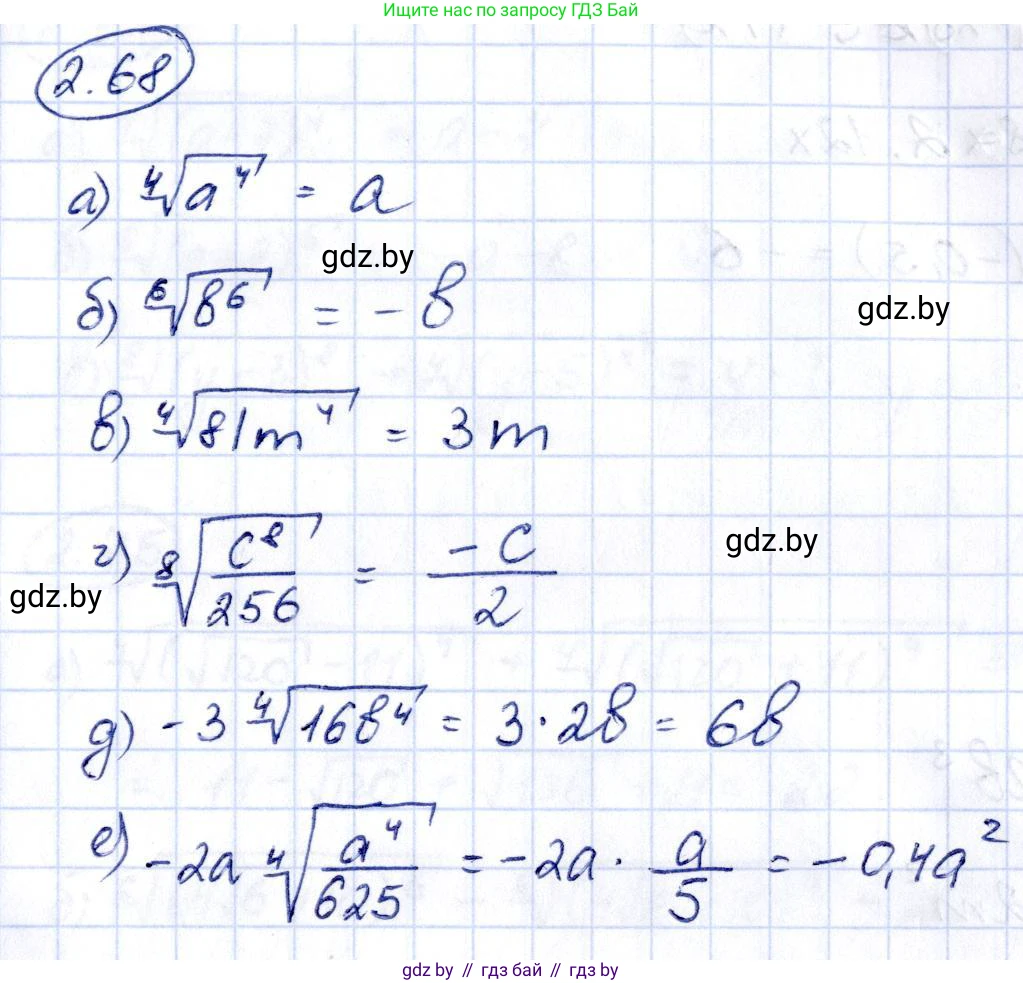 Ищите нас по запросу ГДЗ Бай
2.68
а) ⁴√(a⁴) = a
gdz.by
б) ⁶√(b⁶) = - b
gdz.by
в) ⁴√(81m⁴) = 3m
г) ⁸√(c⁸/256) = -c/2
gdz.by
gdz.by
д) -3 ⁴√(16b⁴) = 3·2b = 6b
е) -2a ⁴√(a⁴/625) = -2a · a/5 = -0,4a²
gdz.by // гдз бай // гдз by